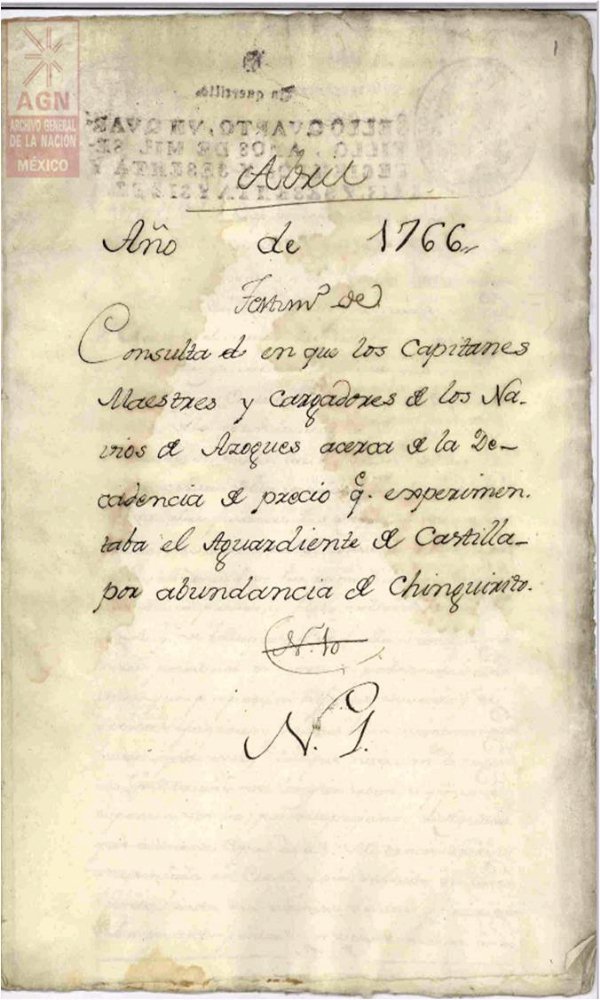 1
AGN
ARCHIVO GENERAL
DE LA NACIÓN
MÉXICO
Un quartillo
SELLO QVARTO, VN QVAR-
TILLO, AÑOS DE MIL SE-
TECIENTOS Y SESENTA Y
Abril
Año de 1766
Testimo de
Consulta de en que los Capitanes
Maestres y Cargadores de los Na-
vios de Azogues acerca de la De-
cadencia de precio q. experimen-
taba el Aguardiente de Castilla
por abundancia de Chinguirito.
N. 10
N. 1.